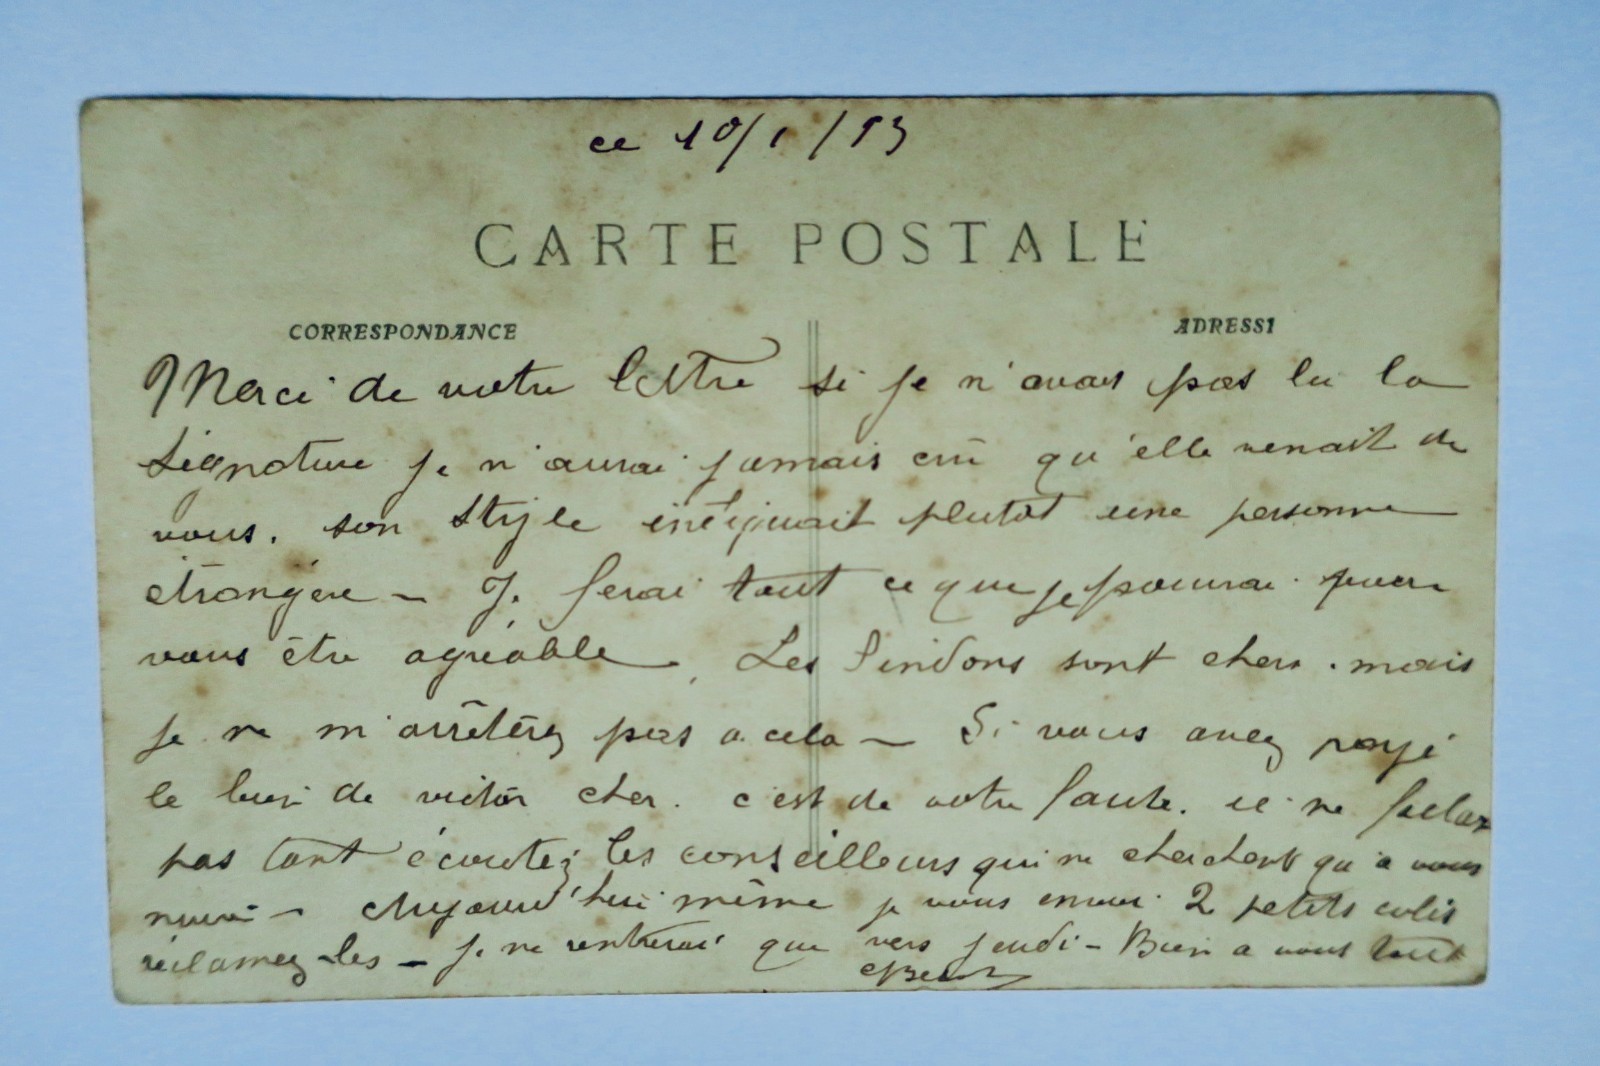 ce 10/1/13
CARTE POSTALE
CORRESPONDANCE
ADRESSE
Merci de votre lettre si je n'avais pas lu la
signature je n'aurai jamais crû qu'elle venait de
vous. son style indiquait plutôt une personne
étrangère – Je ferai tout ce que je pourrai pour
vous être agréable. Les dindons sont chers. mais
je ne m'arrêterez pas a cela – Si vous avez payé
le de victor cher. c'est de votre faute. il ne fallait
pas tant écoutez les conseilleurs qui ne cherchent qu'a vous
nuire – Aujourd'hui même je vous envoi 2 petits colis
réclamez les – Je ne rentrerai que vers jeudi – Bien a vous tout